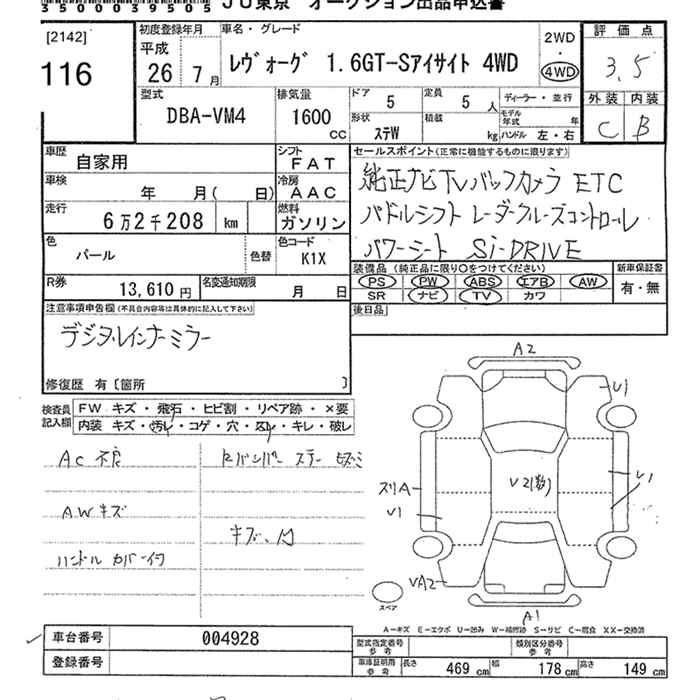 35000039505 JU東京 オークション出品申込書
[2142]
116
初度登録年月
平成
26年 7月
車名・グレード
レヴォーグ 1.6GT-Sアイサイト 4WD
2WD
・
4WD
評価点
3.5
外装 内装
C B
型式
DBA-VM4
排気量
1600
CC
ドア 5
定員 5人
ディーラー・並行
形状 ステW
積載 kg
モデル年式 年
ハンドル 左・右
車歴 自家用
シフト FAT
車検 年 月(日)
冷房 AAC
走行 6万2千208 km
燃料 ガソリン
色 パール
色替
色コード K1X
R券 13,610円
名変通知期限 月 日
セールスポイント(正常に機能するものに限ります)
純正ナビTVバックカメラ ETC
パドルシフト レーダークルーズコントロール
パワーシート Si-DRIVE
装備品(純正品に限り○をつけてください)
PS PW ABS エアB AW
SR ナビ TV カワ
新車保証書
有・無
後日品
注意事項申告欄(不具合内容等は具体的に記入して下さい)
デジタルインナーミラー
修復歴 有〔箇所 〕
検査員記入欄
FW キズ・飛石・ヒビ割・リペア跡・×要
内装 キズ・汚レ・コゲ・穴・凹レ・キレ・破レ
AC 不良
AWキズ
ハンドルカバー付
Rバンパー ステー
キズ、凹
A2
U1
スリA
V1
V2(数)
V1
VA2
A1
スペア
A−キズ E−エクボ U−凹み W−補修跡 S−サビ C−腐食 XX−交換済
車台番号 004928
登録番号
型式指定番号 参考
類別区分番号 参考
車庫証明用 参考
長さ 469cm 幅 178cm 高さ 149cm